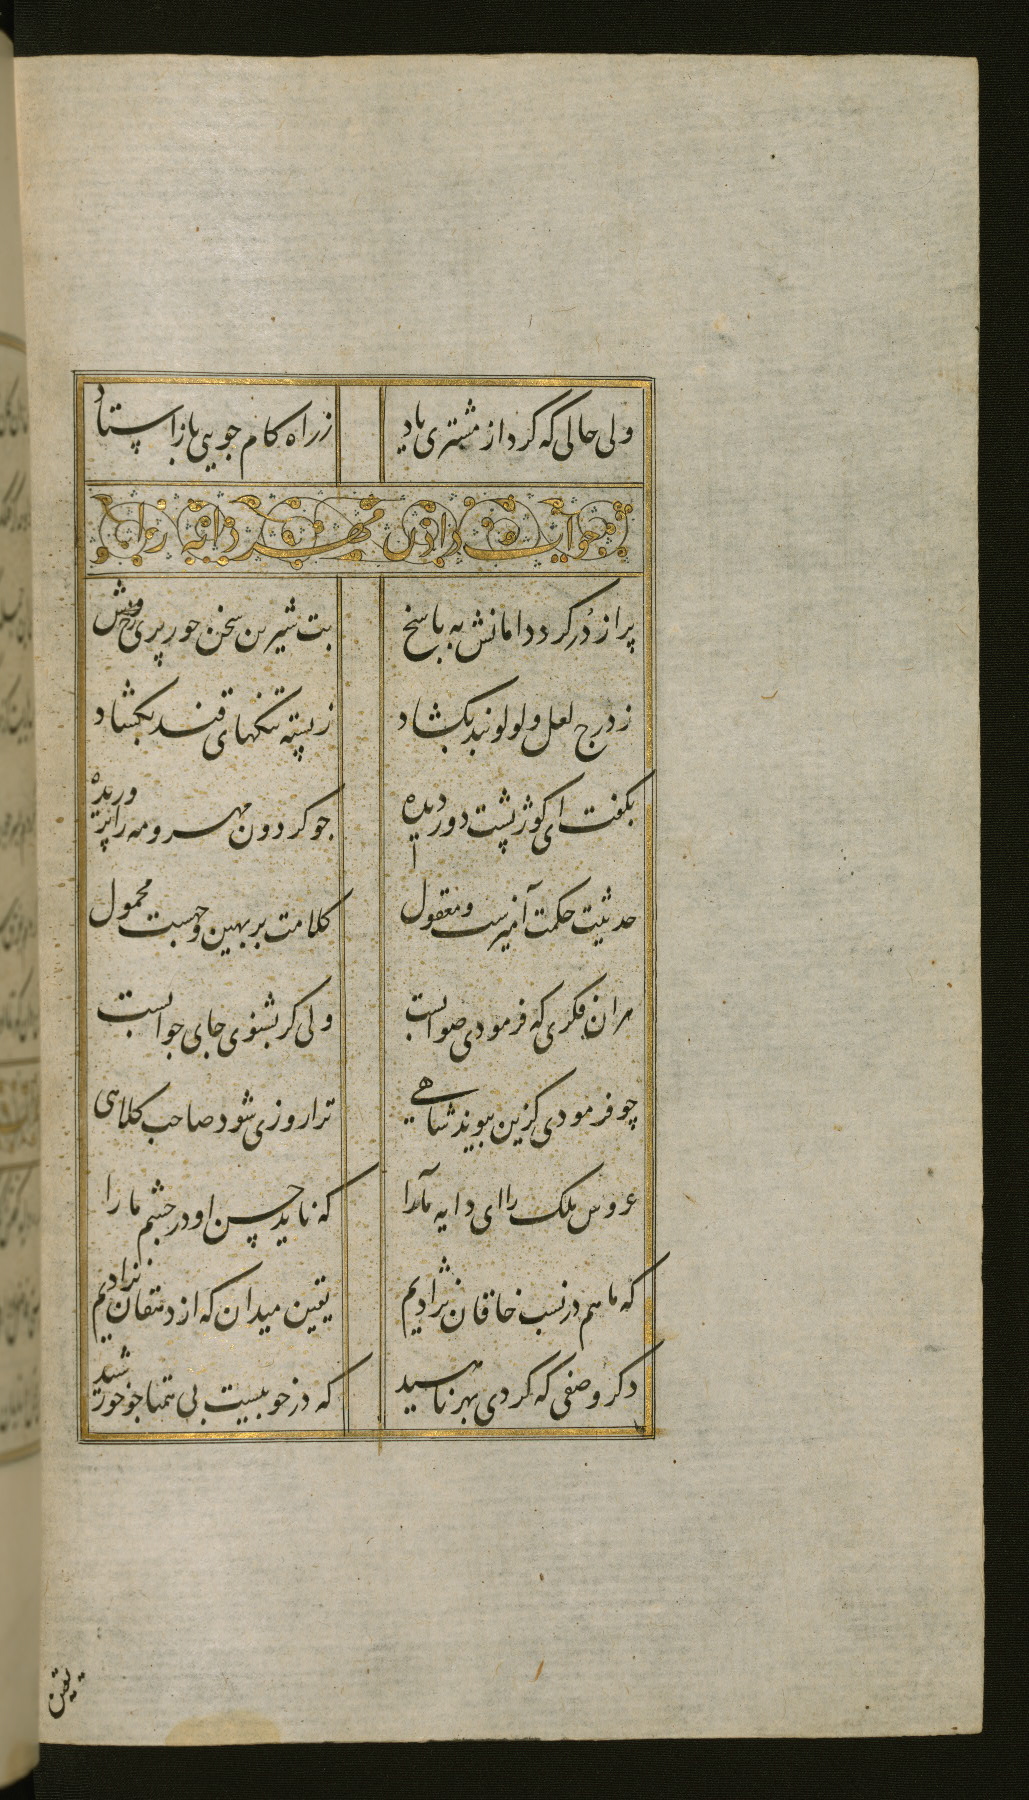 ولی حالی که کرد از مشتری یاد زراه کام جویی باز استاد
جواب دادن مهر دایه را
پر از در کرد دامانش به پاسخ بت شیرین سخن حور پری رخ
ز درج لعل و لولو بند بکشاد ز پسته تنکهای قند بکشاد
بکفت ای کوژ پشت دور دیده جو کردون مهر و مه را پروریده
حدیثیت حکمت آمیزست و معقول کلامت بر بهین وجهست محمول
هر ان فکری که فرمودی صوابست ولی کر بشنوی جای جوابست
چو فرمودی کزین پیوند شاهی ترا روزی شود صاحب کلاهی
عروس ملک را ای دایه مارا که ناید حسن او در چشم ما را
که ما هم در نسب خاقان نژادیم یقین میدان که از دهقان نزادیم
دکر وصفی که کردی بهر ناهید که در خوبیست بی همتا جو خورشید
یقین